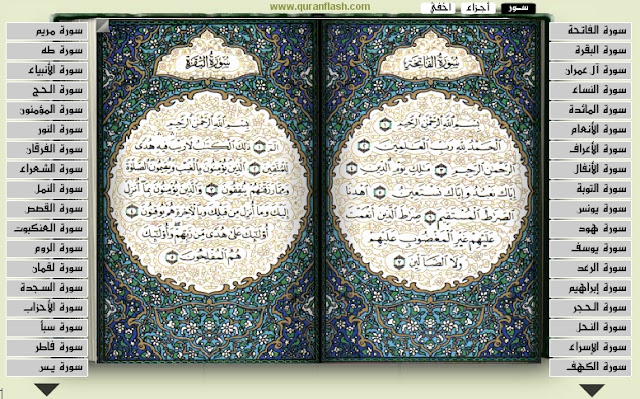 www.quranflash.com
سور
أجزاء
اخفي
سورة الفاتحة
سورة البقرة
سورة آل عمران
سورة النساء
سورة المائدة
سورة الأنعام
سورة الأعراف
سورة الأنفال
سورة التوبة
سورة يونس
سورة هود
سورة يوسف
سورة الرعد
سورة إبراهيم
سورة الحجر
سورة النحل
سورة الإسراء
سورة الكهف
سورة الفاتحة
بسم الله الرحمن الرحيم ١
الحمد لله رب العالمين ٢
الرحمن الرحيم ٣ ملك يوم الدين ٤
إياك نعبد وإياك نستعين ٥ اهدنا
الصرط المستقيم ٦ صرط الذين أنعمت
عليهم غير المغضوب عليهم
ولا الضالين ٧
سورة البقرة
بسم الله الرحمن الرحيم
الم ١ ذلك الكتب لا ريب فيه هدى
للمتقين ٢ الذين يؤمنون بالغيب ويقيمون الصلوة
ومما رزقنهم ينفقون ٣ والذين يؤمنون بما أنزل
إليك وما أنزل من قبلك وبالآخرة هم يوقنون ٤
أولئك على هدى من ربهم وأولئك
هم المفلحون ٥
سورة مريم
سورة طه
سورة الأنبياء
سورة الحج
سورة المؤمنون
سورة النور
سورة الفرقان
سورة الشعراء
سورة النمل
سورة القصص
سورة العنكبوت
سورة الروم
سورة لقمان
سورة السجدة
سورة الأحزاب
سورة سبأ
سورة فاطر
سورة يس